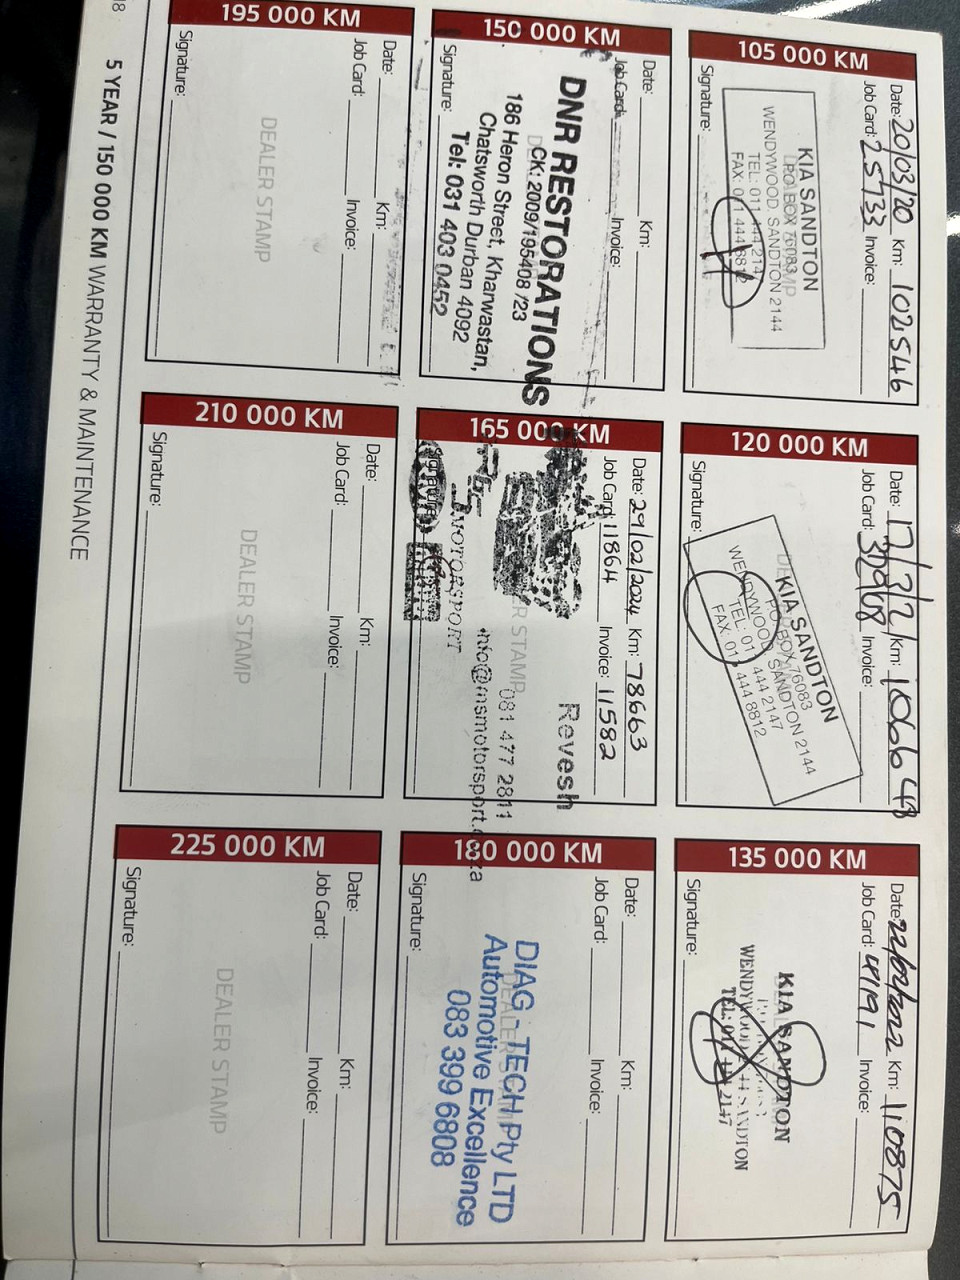 105 000 KM
Date: 20/03/20 Km: 102546
Job Card: 25733 Invoice:
KIA SANDTON
P.O BOX 76083
WENDYWOOD SANDTON 2144
TEL: 011 444 2147
FAX: 011 444 8812
Signature:
120 000 KM
Date: Km: 106648
Job Card: Invoice:
KIA SANDTON
P.O BOX 76083
WENDYWOOD SANDTON 2144
TEL: 011 444 2147
FAX: 011 444 8812
Signature:
135 000 KM
Date: 22/02/2022 Km: 110875
Job Card: 41191 Invoice:
KIA SANDTON
WENDYWOOD SANDTON
TEL: 011 444 2147
Signature:
150 000 KM
Date: Km:
Job Card: Invoice:
DNR RESTORATIONS
CK: 2009/195408 /23
186 Heron Street, Kharwastan,
Chatsworth Durban 4092
Tel: 031 403 0452
Signature:
165 000 KM
Date: 29/02/2024 Km: 78663
Job Card: 11864 Invoice: 11582
Revesh
DEALER STAMP
081 477 2811
MOTORSPORT info@msmotorsport.co.za
Signature:
180 000 KM
Date: Km:
Job Card: Invoice:
DEALER STAMP
DIAG - TECH Pty LTD
Automotive Excellence
083 399 6808
Signature:
195 000 KM
Date: Km:
Job Card: Invoice:
DEALER STAMP
Signature:
210 000 KM
Date: Km:
Job Card: Invoice:
DEALER STAMP
Signature:
225 000 KM
Date: Km:
Job Card: Invoice:
DEALER STAMP
Signature:
5 YEAR / 150 000 KM WARRANTY & MAINTENANCE